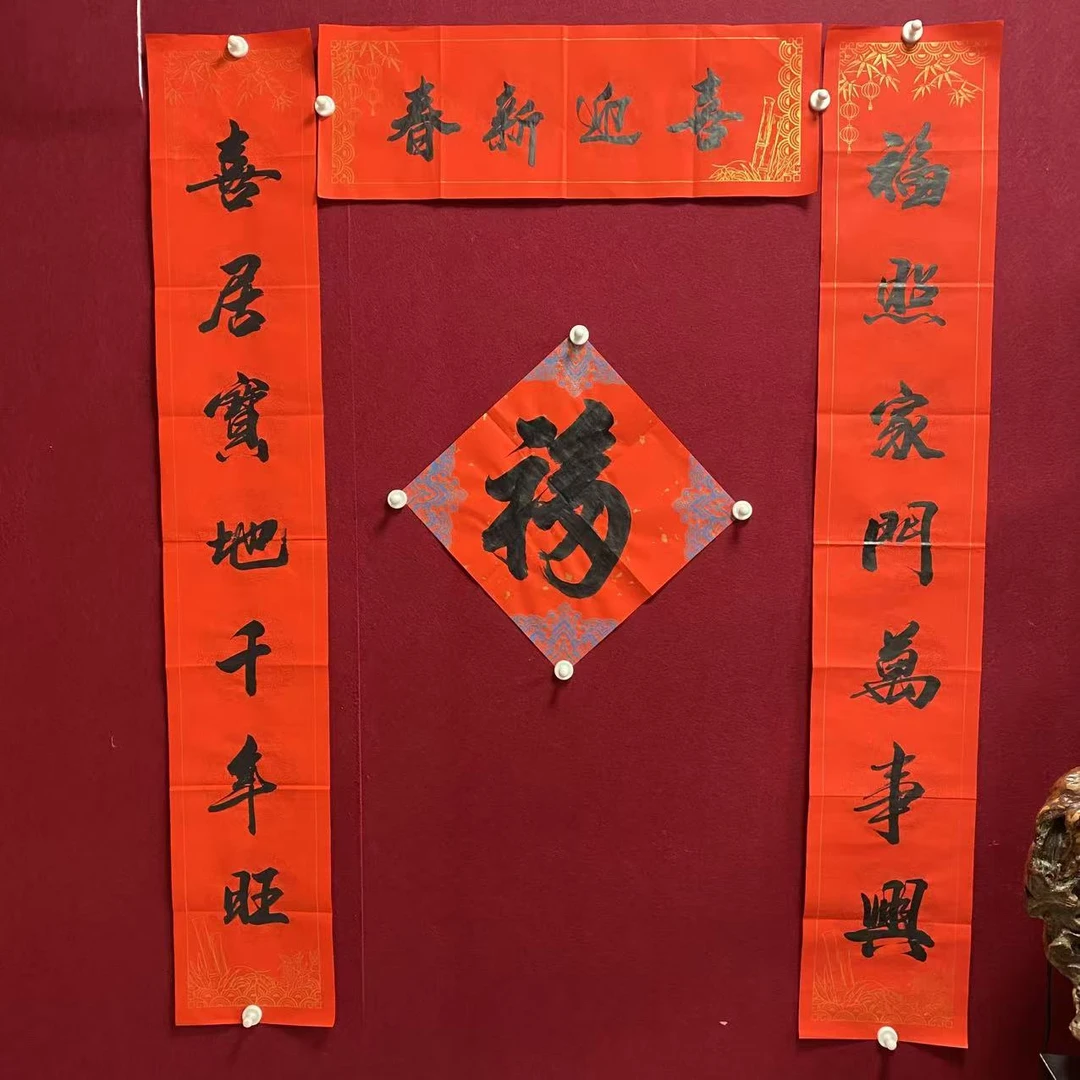 春新迎喜
福照家門萬事興
喜居寶地千年旺
福